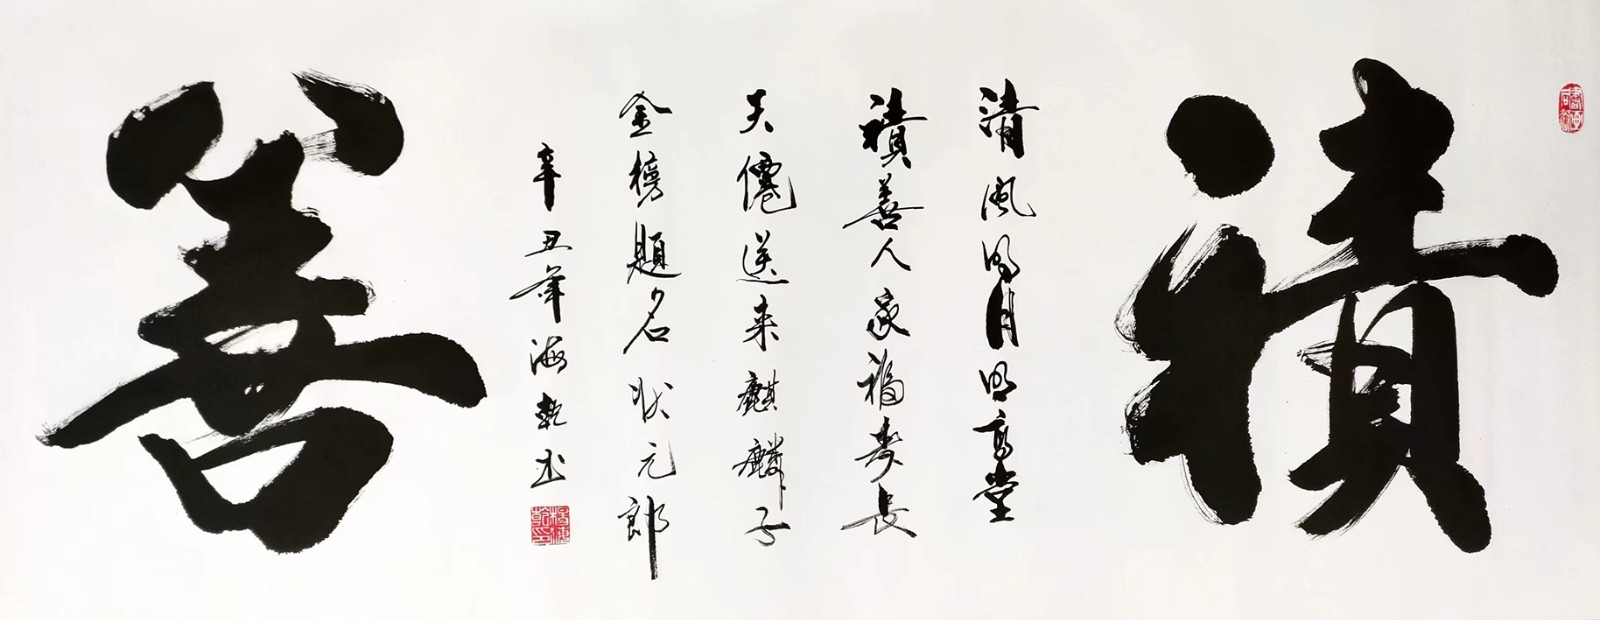 積
清風明月照高堂
積善人家福寿長
天僊送来麒麟子
金榜題名状元郎
辛丑年海乾书
善